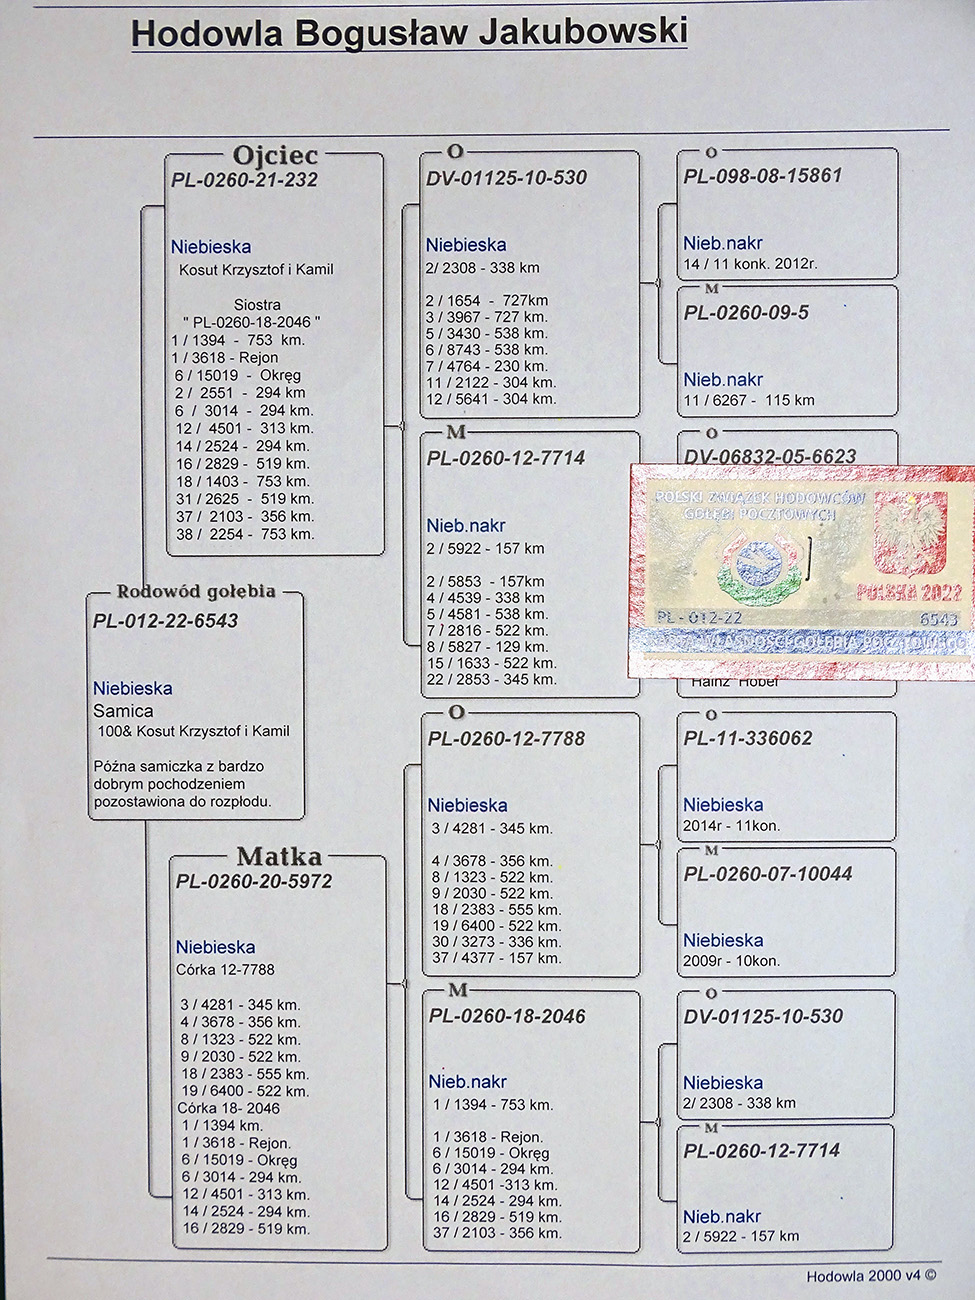 Hodowla Bogusław Jakubowski
Ojciec
PL-0260-21-232
Niebieska
Kosut Krzysztof i Kamil
Siostra
" PL-0260-18-2046 "
1 / 1394 - 753 km.
1 / 3618 - Rejon
6 / 15019 - Okręg
2 / 2551 - 294 km
6 / 3014 - 294 km.
12 / 4501 - 313 km.
14 / 2524 - 294 km.
16 / 2829 - 519 km.
18 / 1403 - 753 km.
31 / 2625 - 519 km.
37 / 2103 - 356 km.
38 / 2254 - 753 km.
Rodowód gołębia
PL-012-22-6543
Niebieska
Samica
100& Kosut Krzysztof i Kamil
Późna samiczka z bardzo
dobrym pochodzeniem
pozostawiona do rozpłodu.
Matka
PL-0260-20-5972
Niebieska
Córka 12-7788
3 / 4281 - 345 km.
4 / 3678 - 356 km.
8 / 1323 - 522 km.
9 / 2030 - 522 km.
18 / 2383 - 555 km.
19 / 6400 - 522 km.
Córka 18- 2046
1 / 1394 km.
1 / 3618 - Rejon.
6 / 15019 - Okręg
6 / 3014 - 294 km.
12 / 4501 - 313 km.
14 / 2524 - 294 km.
16 / 2829 - 519 km.
O
DV-01125-10-530
Niebieska
2/ 2308 - 338 km
2 / 1654 - 727km
3 / 3967 - 727 km.
5 / 3430 - 538 km.
6 / 8743 - 538 km.
7 / 4764 - 230 km.
11 / 2122 - 304 km.
12 / 5641 - 304 km.
M
PL-0260-12-7714
Nieb.nakr
2 / 5922 - 157 km
2 / 5853 - 157km
4 / 4539 - 338 km
5 / 4581 - 538 km.
7 / 2816 - 522 km.
8 / 5827 - 129 km.
15 / 1633 - 522 km.
22 / 2853 - 345 km.
O
PL-0260-12-7788
Niebieska
3 / 4281 - 345 km.
4 / 3678 - 356 km.
8 / 1323 - 522 km.
9 / 2030 - 522 km.
18 / 2383 - 555 km.
19 / 6400 - 522 km.
30 / 3273 - 336 km.
37 / 4377 - 157 km.
M
PL-0260-18-2046
Nieb.nakr
1 / 1394 - 753 km.
1 / 3618 - Rejon.
6 / 15019 - Okręg
6 / 3014 - 294 km.
12 / 4501 -313 km.
14 / 2524 - 294 km.
16 / 2829 - 519 km.
37 / 2103 - 356 km.
O
PL-098-08-15861
Nieb.nakr
14 / 11 konk. 2012r.
M
PL-0260-09-5
Nieb.nakr
11 / 6267 - 115 km
O
DV-06832-05-6623
POLSKI ZWIĄZEK HODOWCÓW
GOŁĘBI POCZTOWYCH
POLSKA 2022
PL - 012-22 6543
WŁASNOŚCI GOŁĘBIA POCZTOWEGO
Hainz Hober
O
PL-11-336062
Niebieska
2014r - 11kon.
M
PL-0260-07-10044
Niebieska
2009r - 10kon.
O
DV-01125-10-530
Niebieska
2/ 2308 - 338 km
M
PL-0260-12-7714
Nieb.nakr
2 / 5922 - 157 km
Hodowla 2000 v4 ©